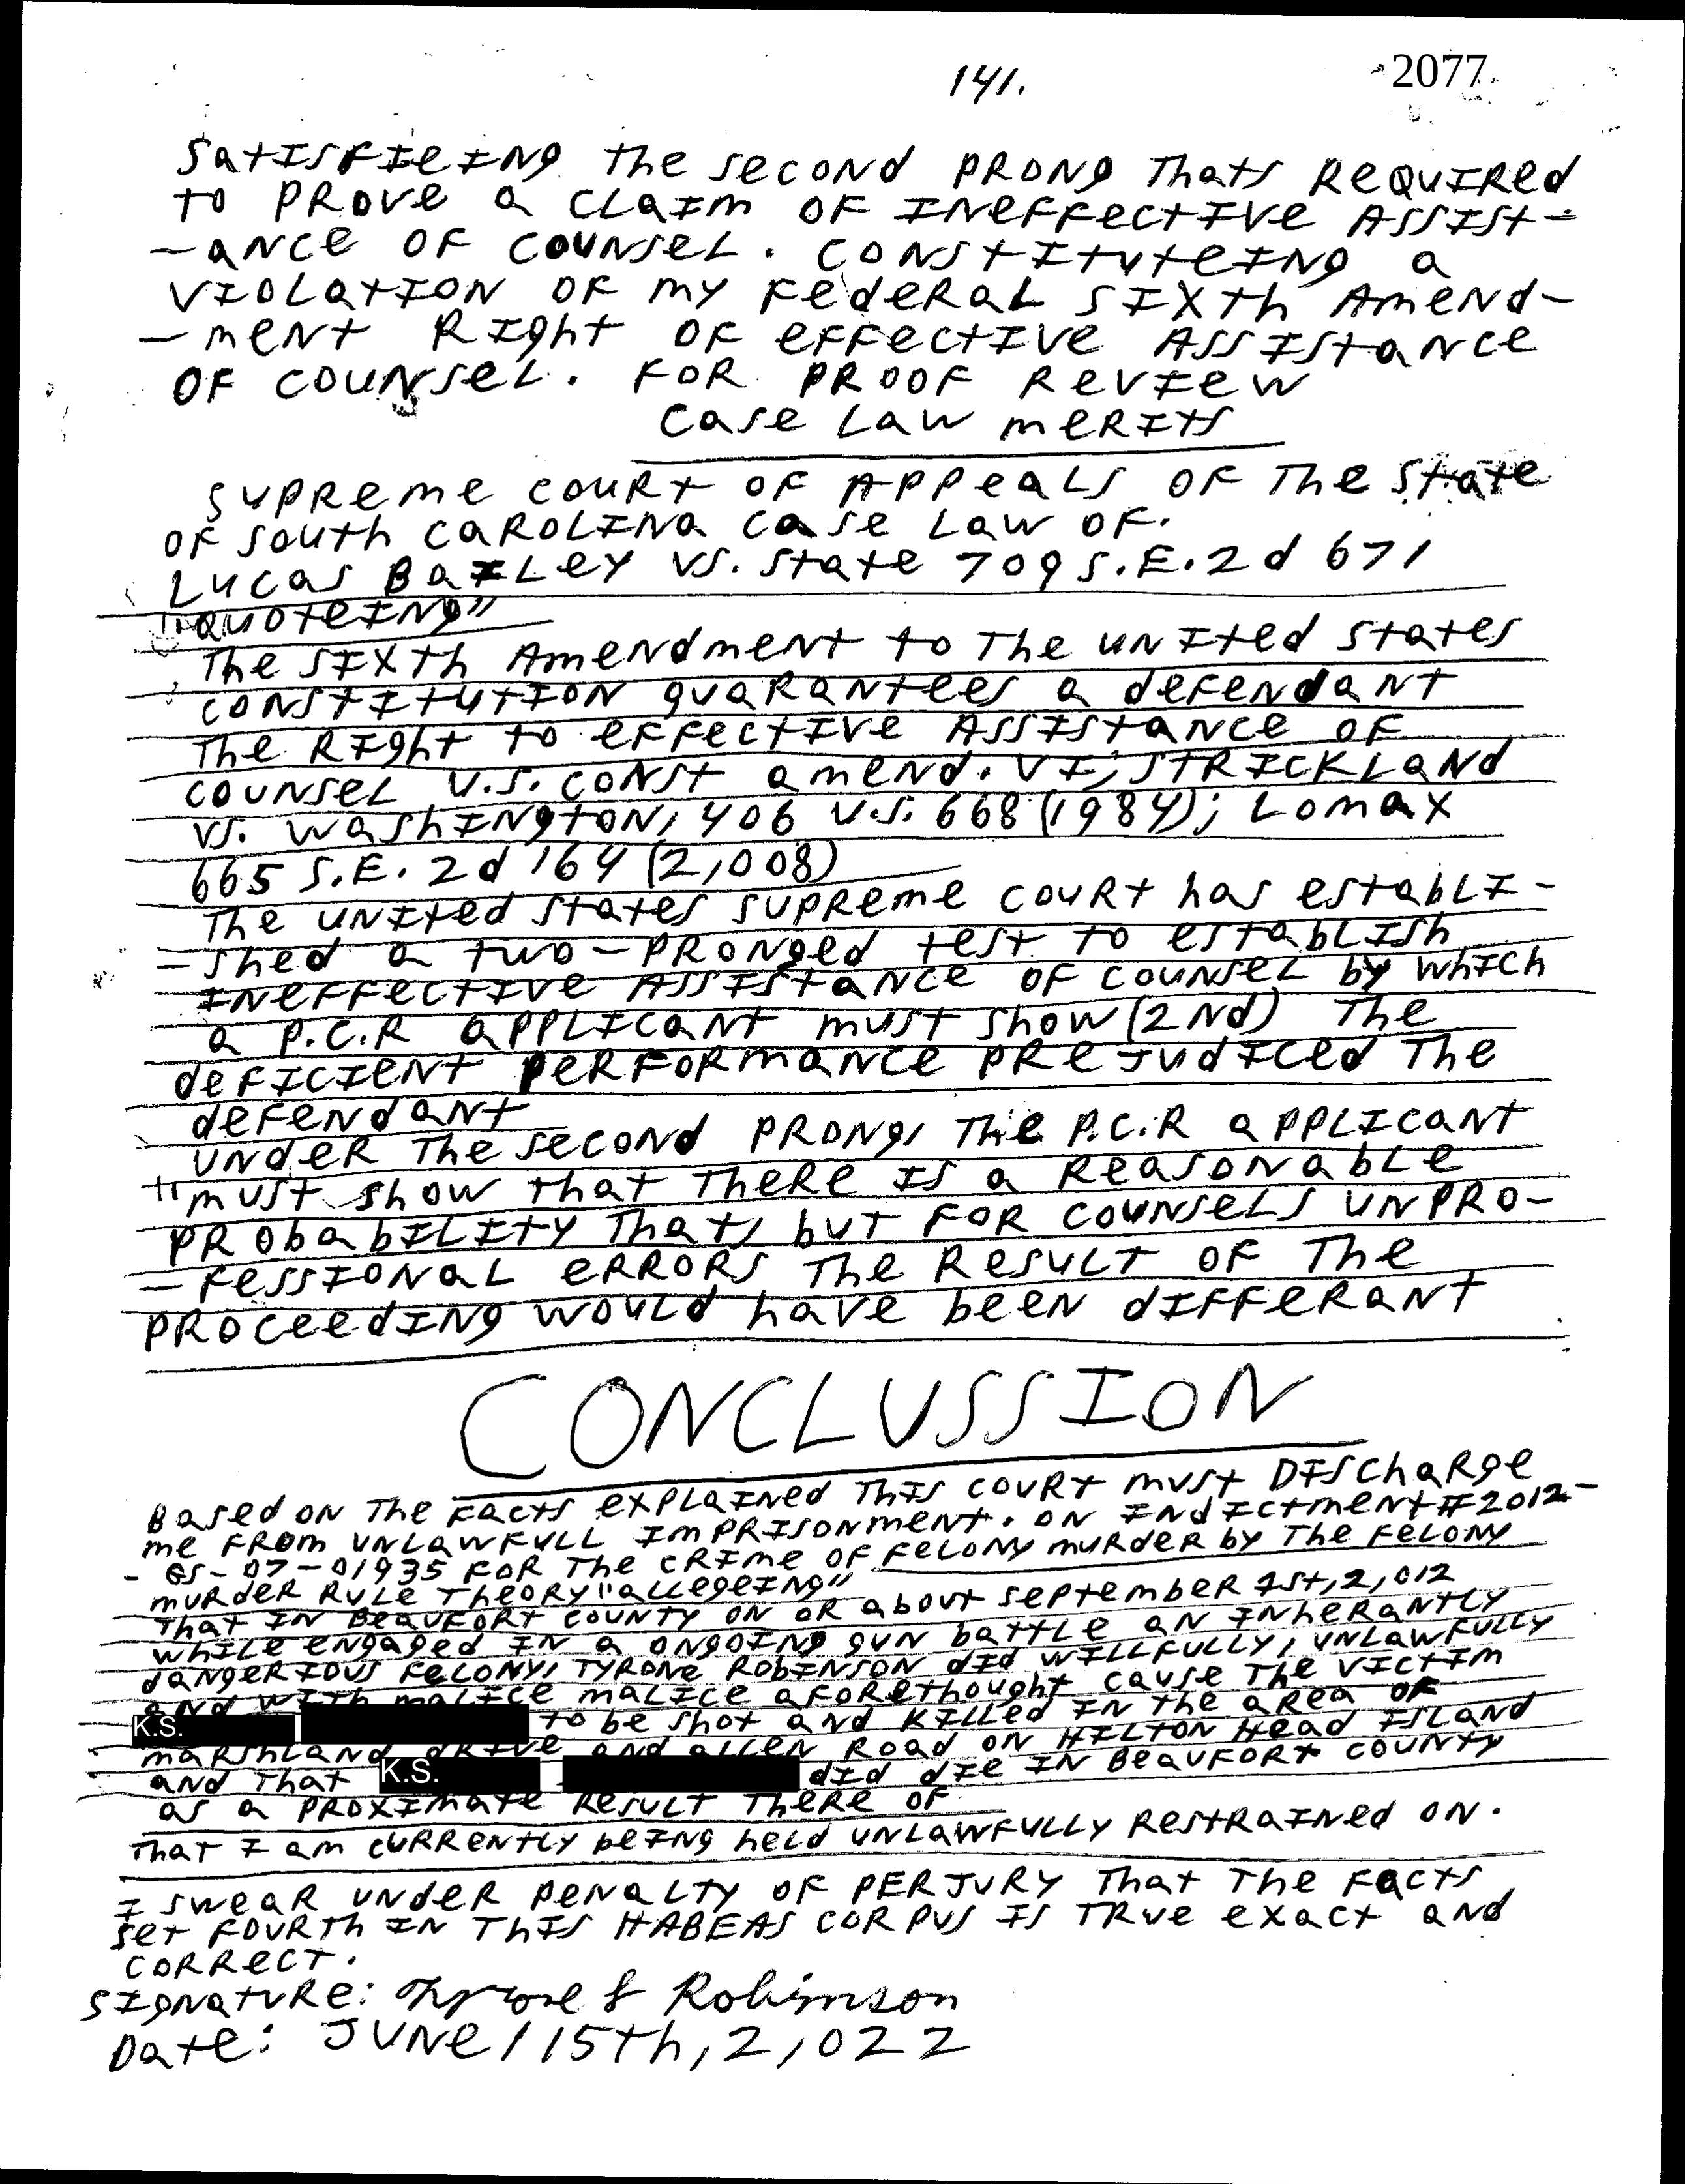 141.
2077
SatISFIeING the second PRONG Thats REQUIRed
to PROVe a CLaIm OF INeFFectIVe ASSISt-
-aNCe OF COUNSeL. CONStItuteING a
VIOLatION OF my FedeRaL SIXth AmeNd-
-meNt RIght OF eFFectIVe ASSIStaNCe
OF COUNSeL. FOR PROOF ReVIew
Case Law meRItS
SUPReme COURt OF APPeaLS OF The State
OF South CaROLINa Case Law OF.
Lucas BaILey VS. State 709 S.E.2d 671
"QUOteING"
The SIXth AmeNdmeNt to The UNIted States
CONStItutION guaRaNtees a deFeNdaNt
The RIght to eFFectIVe ASSIStaNCe OF
COUNSeL U.S. CONSt ameNd. VI; STRICKLaNd
VS. WaShINgtoN, 406 U.S. 668 (1984); Lomax
665 S.E. 2d 164 (2,008)
The UNIted States SUPReme COURt has estabLI-
-shed a two-PRONged test to estabLISh
INeFFectIVe ASSIStaNCe OF COUNSeL by which
a P.C.R aPPLICaNt must show (2Nd) The
deFICIeNt PeRFORmaNCe PReJudICed The
deFeNdaNt
UNdeR The second PRONg, The P.C.R aPPLICaNt
"must show that TheRe IS a ReasONabLe
PRObabILIty That, but FOR COUNSeLS UNPRO-
-FeSSIONaL eRRORS The ResuLt OF The
PROCeedINg wouLd have beeN dIFFeRaNt
CONCLUSSION
Based ON The Facts exPLaINed ThIS COURt must DISChaRge
me FROm UNLawFULL ImPRISONmeNt. ON INdICtmeNt #2012-
- GS-07-01935 FOR The CRIme OF FeLONy muRdeR by The FeLONy
muRdeR RuLe TheORy "aLLegeINg"
That IN BeauFORt COUNty ON OR about SeptembeR 1St, 2,012
whILe eNgaged IN a ONgOINg guN battLe aN INheRaNtLy
daNgeRIOUS FeLONy, TyRONe RobINSON dId wILLFuLLy, UNLawFuLLy
aNd wIth maLICe maLICe aFORethought cause The VICtIm
K.S. to be shot aNd KILLed IN the aRea OF
maRShLaNd dRIVe aNd aLLeN Road ON HILtON Head ISLaNd
aNd That K.S. dId dIe IN BeauFORt COUNty
as a PROXImate ResuLt TheRe OF
That I am CuRReNtLy beINg heLd UNLawFuLLy RestRaINed ON.
I SweaR UNdeR PeNaLty OF PERJURY That The Facts
Set FOURth IN ThIS HABEAS CORPUS IS TRue exact aNd
CORRect.
SIgNatuRe: Tyrone J Robinson
Date: JUNe / 15th, 2,022